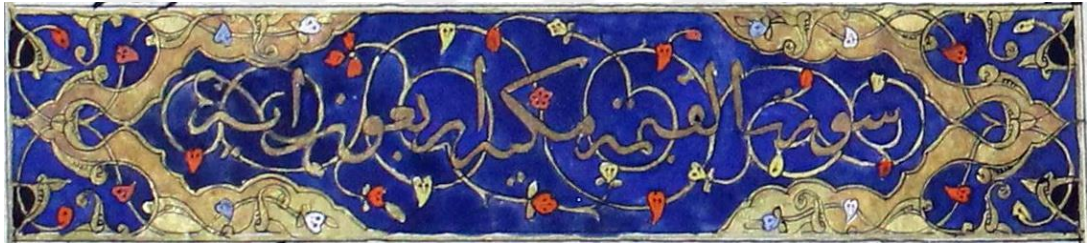 سورة القيمة مكية اربعون اية